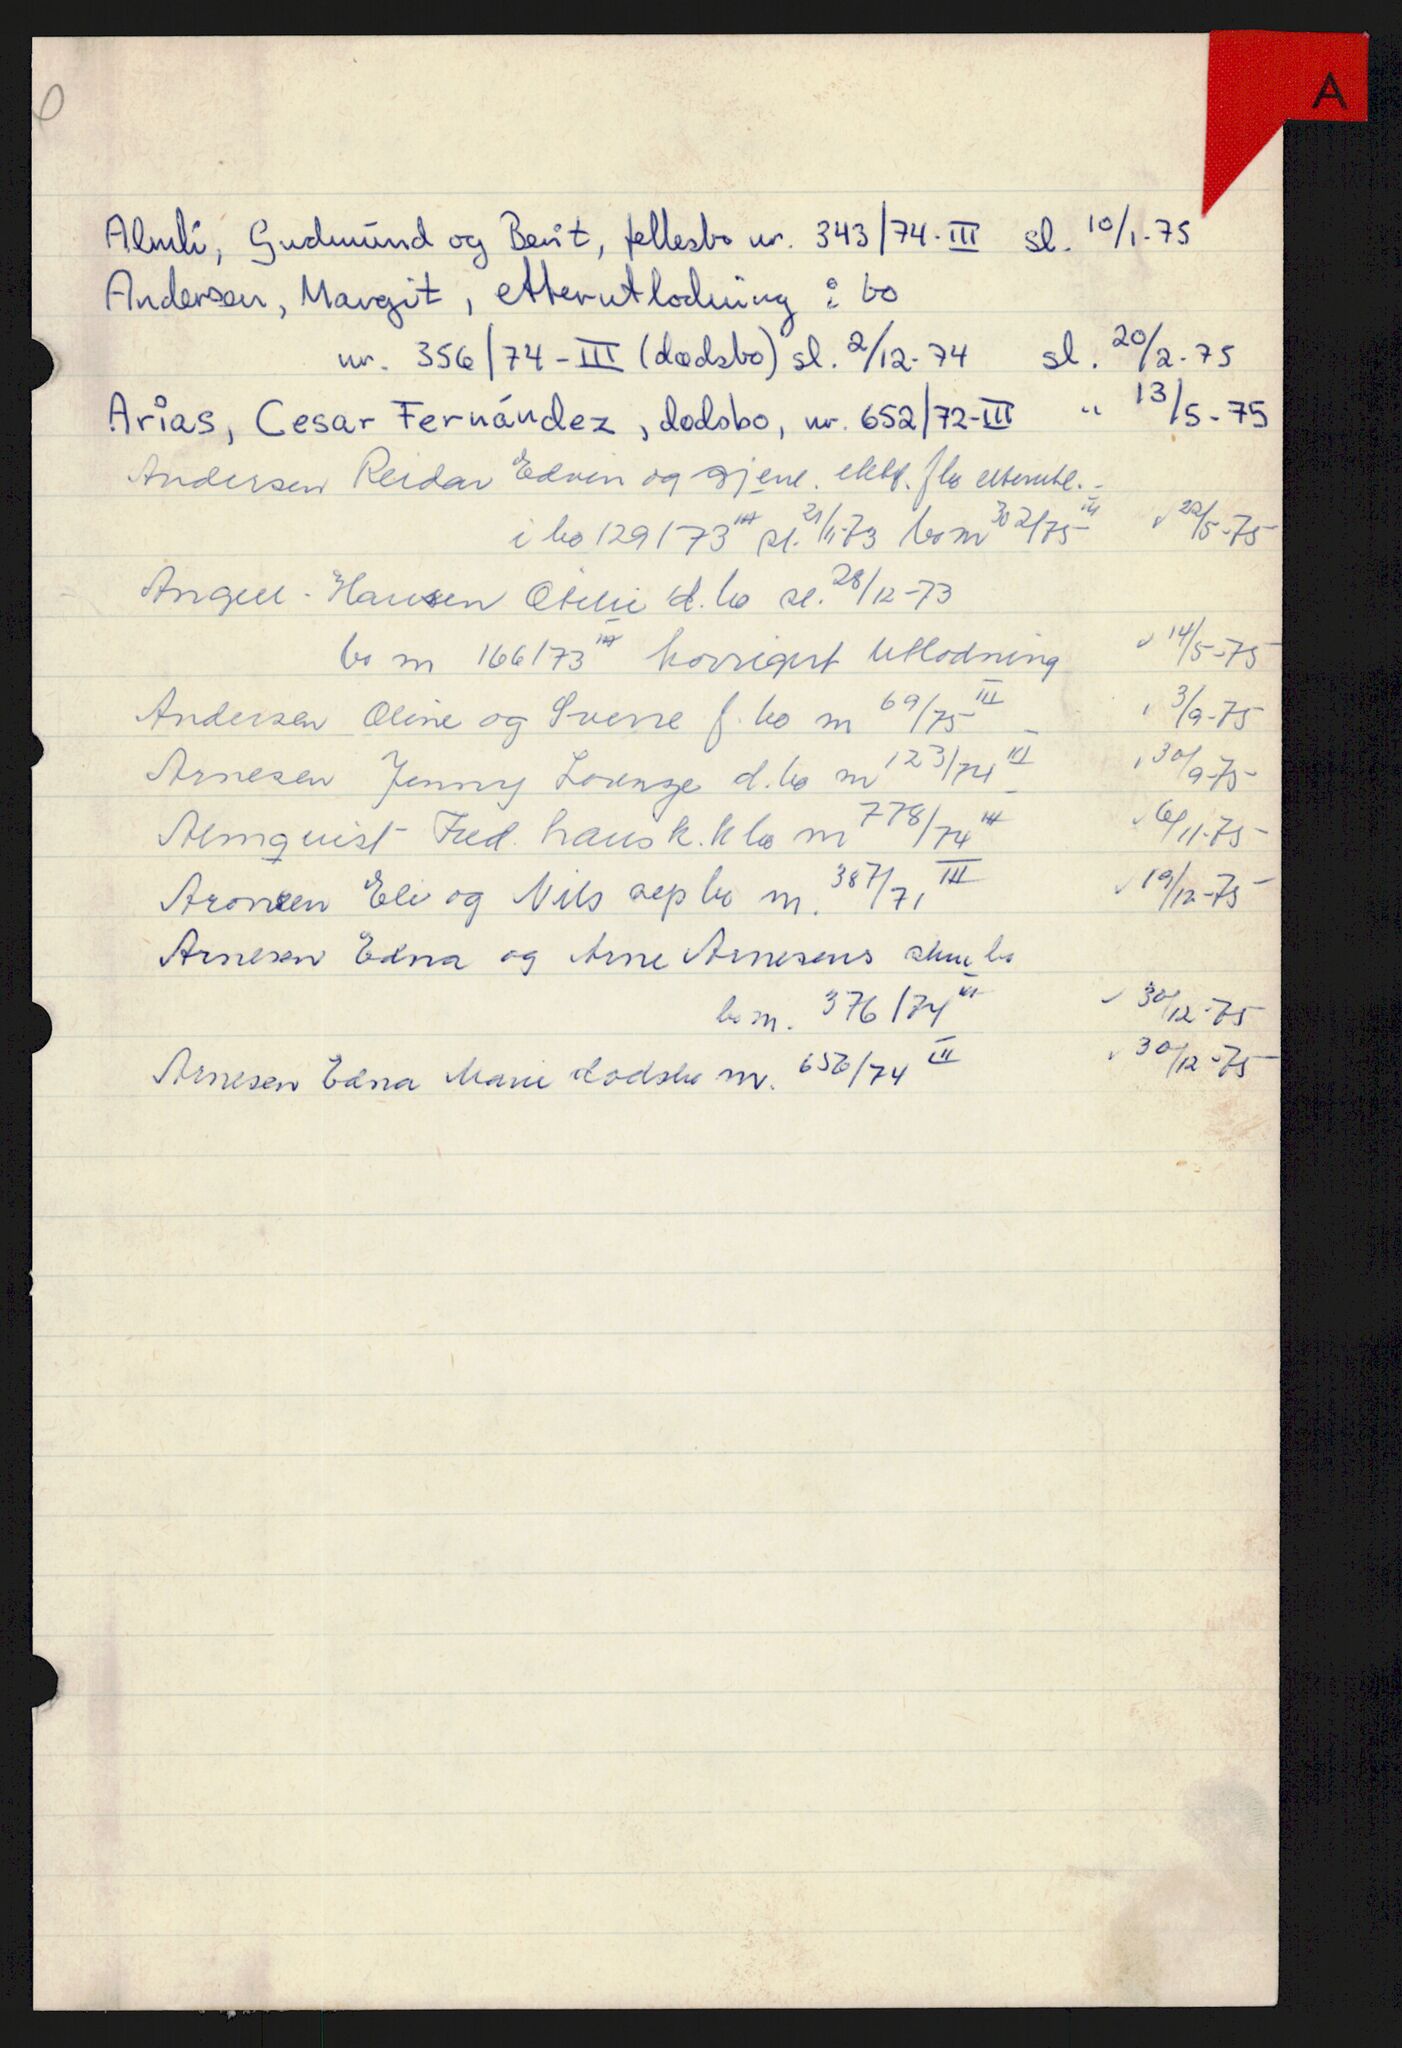 A
Almli, Gudmund og Berit, fellesbo nr. 343/74-III sl. 10/1-75
Andersen, Margit, etterutlodning i bo
nr. 356/74-III (dødsbo) sl. 2/12-74 sl. 20/2-75
Arias, Cesar Fernández, dødsbo, nr. 652/72-III " 13/5-75
Andersen Reidar Edvin og gjenl. ektef. f bo etterutl.
i bo 129/73 III sl. 21/11-73 bo nr 302/75 III 22/5-75
Angell-Hansen Otilie d.bo sl. 28/12-73
bo nr 166/73 III korrigert utlodning 14/5-75
Andersen Oline og Sverre f. bo nr 69/75 III 3/9-75
Arnesen Jenny d.bo nr 123/74 III 30/9-75
Almquist Fred k bo nr 778/74 III 6/11-75
Aronsen Eli og Nils sep bo nr. 387/71 III 19/12-75
Arnesen Edna og Arne Arnesens bo
bo nr. 376/74 III 30/12-75
Arnesen Edna Marie dødsbo nr. 656/74 III 30/12-75